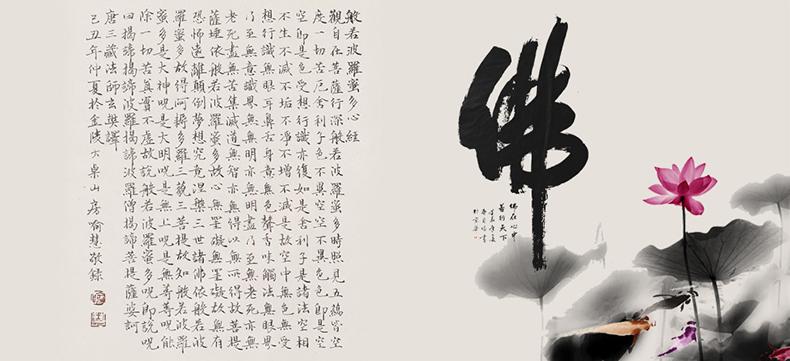 般若波羅蜜多心經
觀自在菩薩行深般若波羅蜜多時照見五蘊皆空
度一切苦厄舍利子色不異空空不異色色即是空
空即是色受想行識亦復如是舍利子是諸法空相
不生不滅不垢不淨不增不減是故空中無色無受
想行識無眼耳鼻舌身意無色聲香味觸法無眼界
乃至無意識界無無明亦無無明盡乃至無老死亦無
老死盡無苦集滅道無智亦無得以無所得故菩提
薩埵依般若波羅蜜多故心無罣礙無罣礙故無有
恐怖遠離顛倒夢想究竟涅槃三世諸佛依般若波
羅蜜多故得阿耨多羅三藐三菩提故知般若波羅
蜜多是大神呪是大明呪是無上呪是無等等呪能
除一切苦真實不虛故說般若波羅蜜多呪即說呪
曰揭諦揭諦波羅揭諦波羅僧揭諦菩提薩婆訶
唐三藏法師玄奘譯
己丑年仲夏於金陵山房喻慧敬錄
佛
佛在心中
善行天下